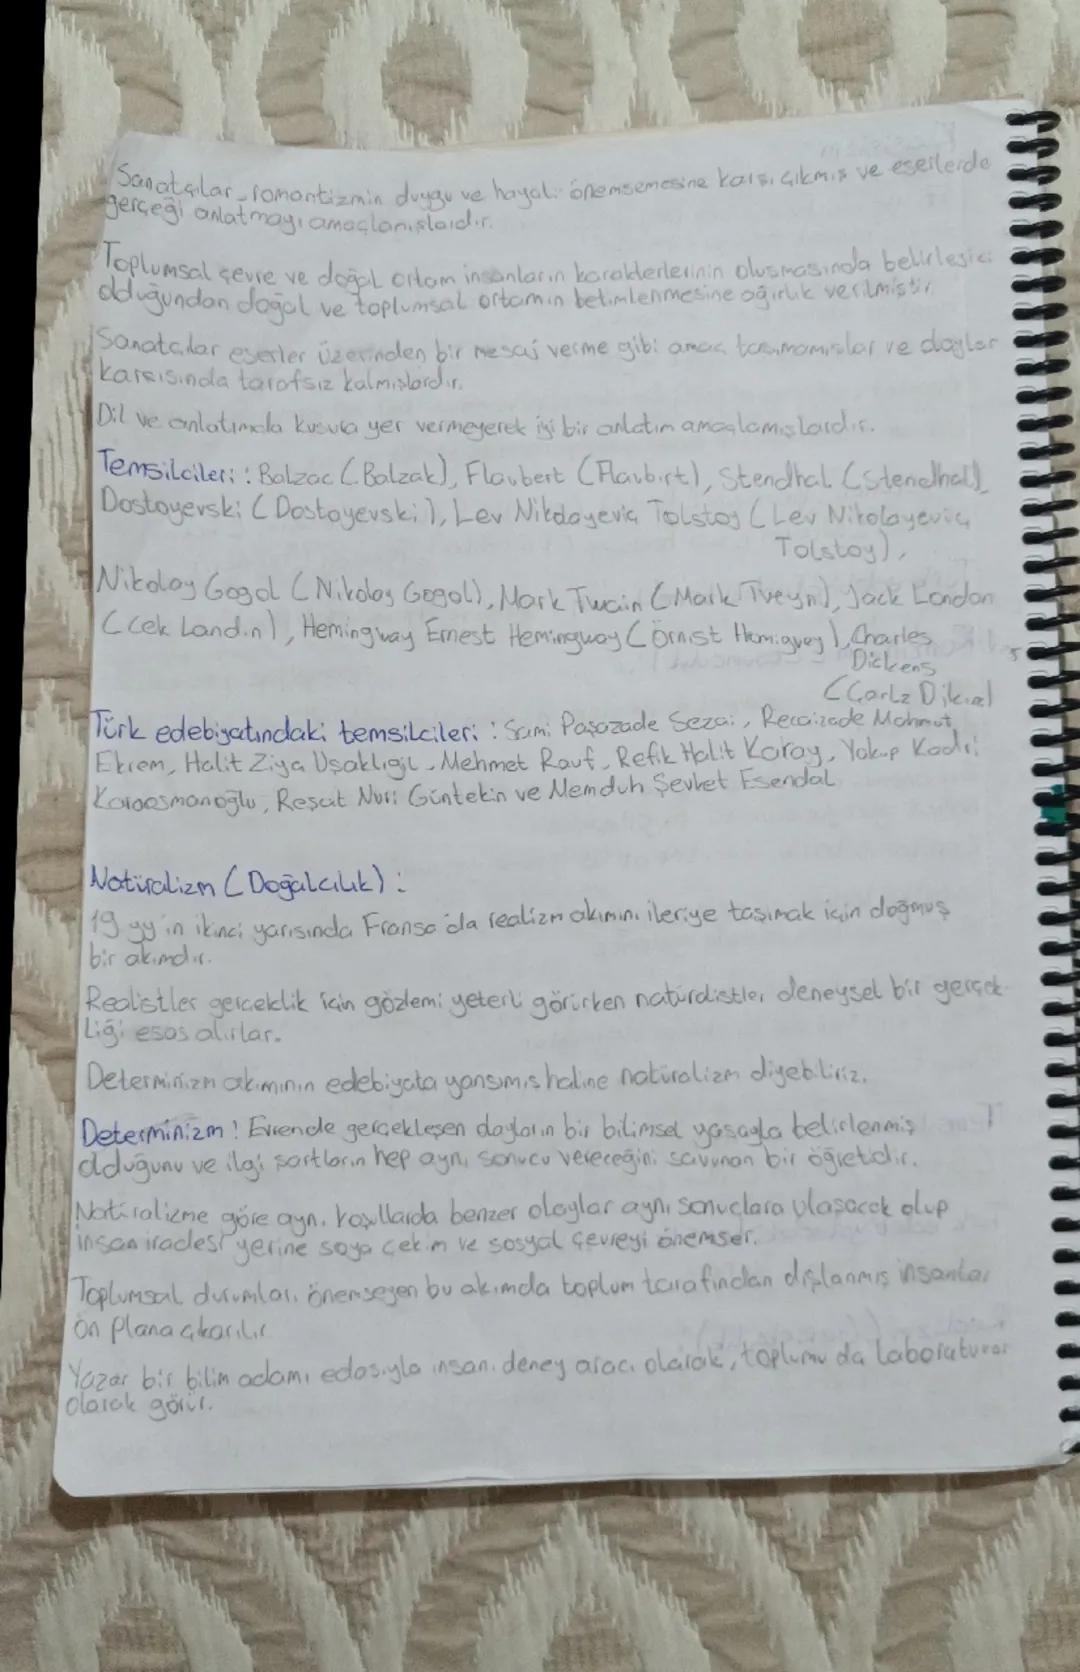 Sanatçılar romantizmin duygu ve hayali önemsemesine karşı çıkmış ve eserlerde
gerçeği anlatmayı amaçlamışlardır.
Toplumsal çevre ve doğal ortam insanların karakterlerinin oluşmasında belirleyici
olduğundan doğal ve toplumsal ortamın betimlenmesine ağırlık verilmiştir.
Sanatçılar eserler üzerinden bir mesaj verme gibi amaç taşımamışlar ve olaylar
karşısında tarafsız kalmışlardır.
Dil ve anlatımda kusura yer vermeyerek iyi bir anlatım amaçlamışlardır.
Temsilcileri : Balzac (Balzak), Flaubert (Flaubırt), Stendhal (Stendhal),
Dostoyevski (Dostoyevski), Lev Nikolayeviç Tolstoy (Lev Nikolayeviç
Tolstoy),
Nikolay Gogol (Nikolay Gogol), Mark Twain (Mark Tveyn), Jack London
(Cek Landın), Hemingway Ernest Hemingway (Örnist Hemigvey), Charles
Dickens
(Çarlz Dikınz)
Türk edebiyatındaki temsilcileri : Sami Paşazade Sezai, Recaizade Mahmut
Ekrem, Halit Ziya Uşaklıgil, Mehmet Rauf, Refik Halit Karay, Yakup Kadri
Karaosmanoğlu, Reşat Nuri Güntekin ve Memduh Şevket Esendal
Natüralizm (Doğalcılık) :
19 yy'ın ikinci yarısında Fransa'da realizm akımını ileriye taşımak için doğmuş
bir akımdır.
Realistler gerçeklik için gözlemi yeterli görürken natüralistler deneysel bir gerçek-
liği esas alırlar.
Determinizm akımının edebiyata yansımış haline natüralizm diyebiliriz.
Determinizm : Evrende gerçekleşen olayların bir bilimsel yasayla belirlenmiş
olduğunu ve ilgi şartların hep aynı sonucu vereceğini savunan bir öğretidir.
Natüralizme göre aynı koşullarda benzer olaylar aynı sonuçlara ulaşacak olup
insan iradesi yerine soya çekim ve sosyal çevreyi önemser.
Toplumsal durumları önemseyen bu akımda toplum tarafından dışlanmış insanlar
ön plana çıkarılır
Yazar bir bilim adamı edasıyla insanı deney aracı olarak, toplumu da laboratuvar
olarak görür.